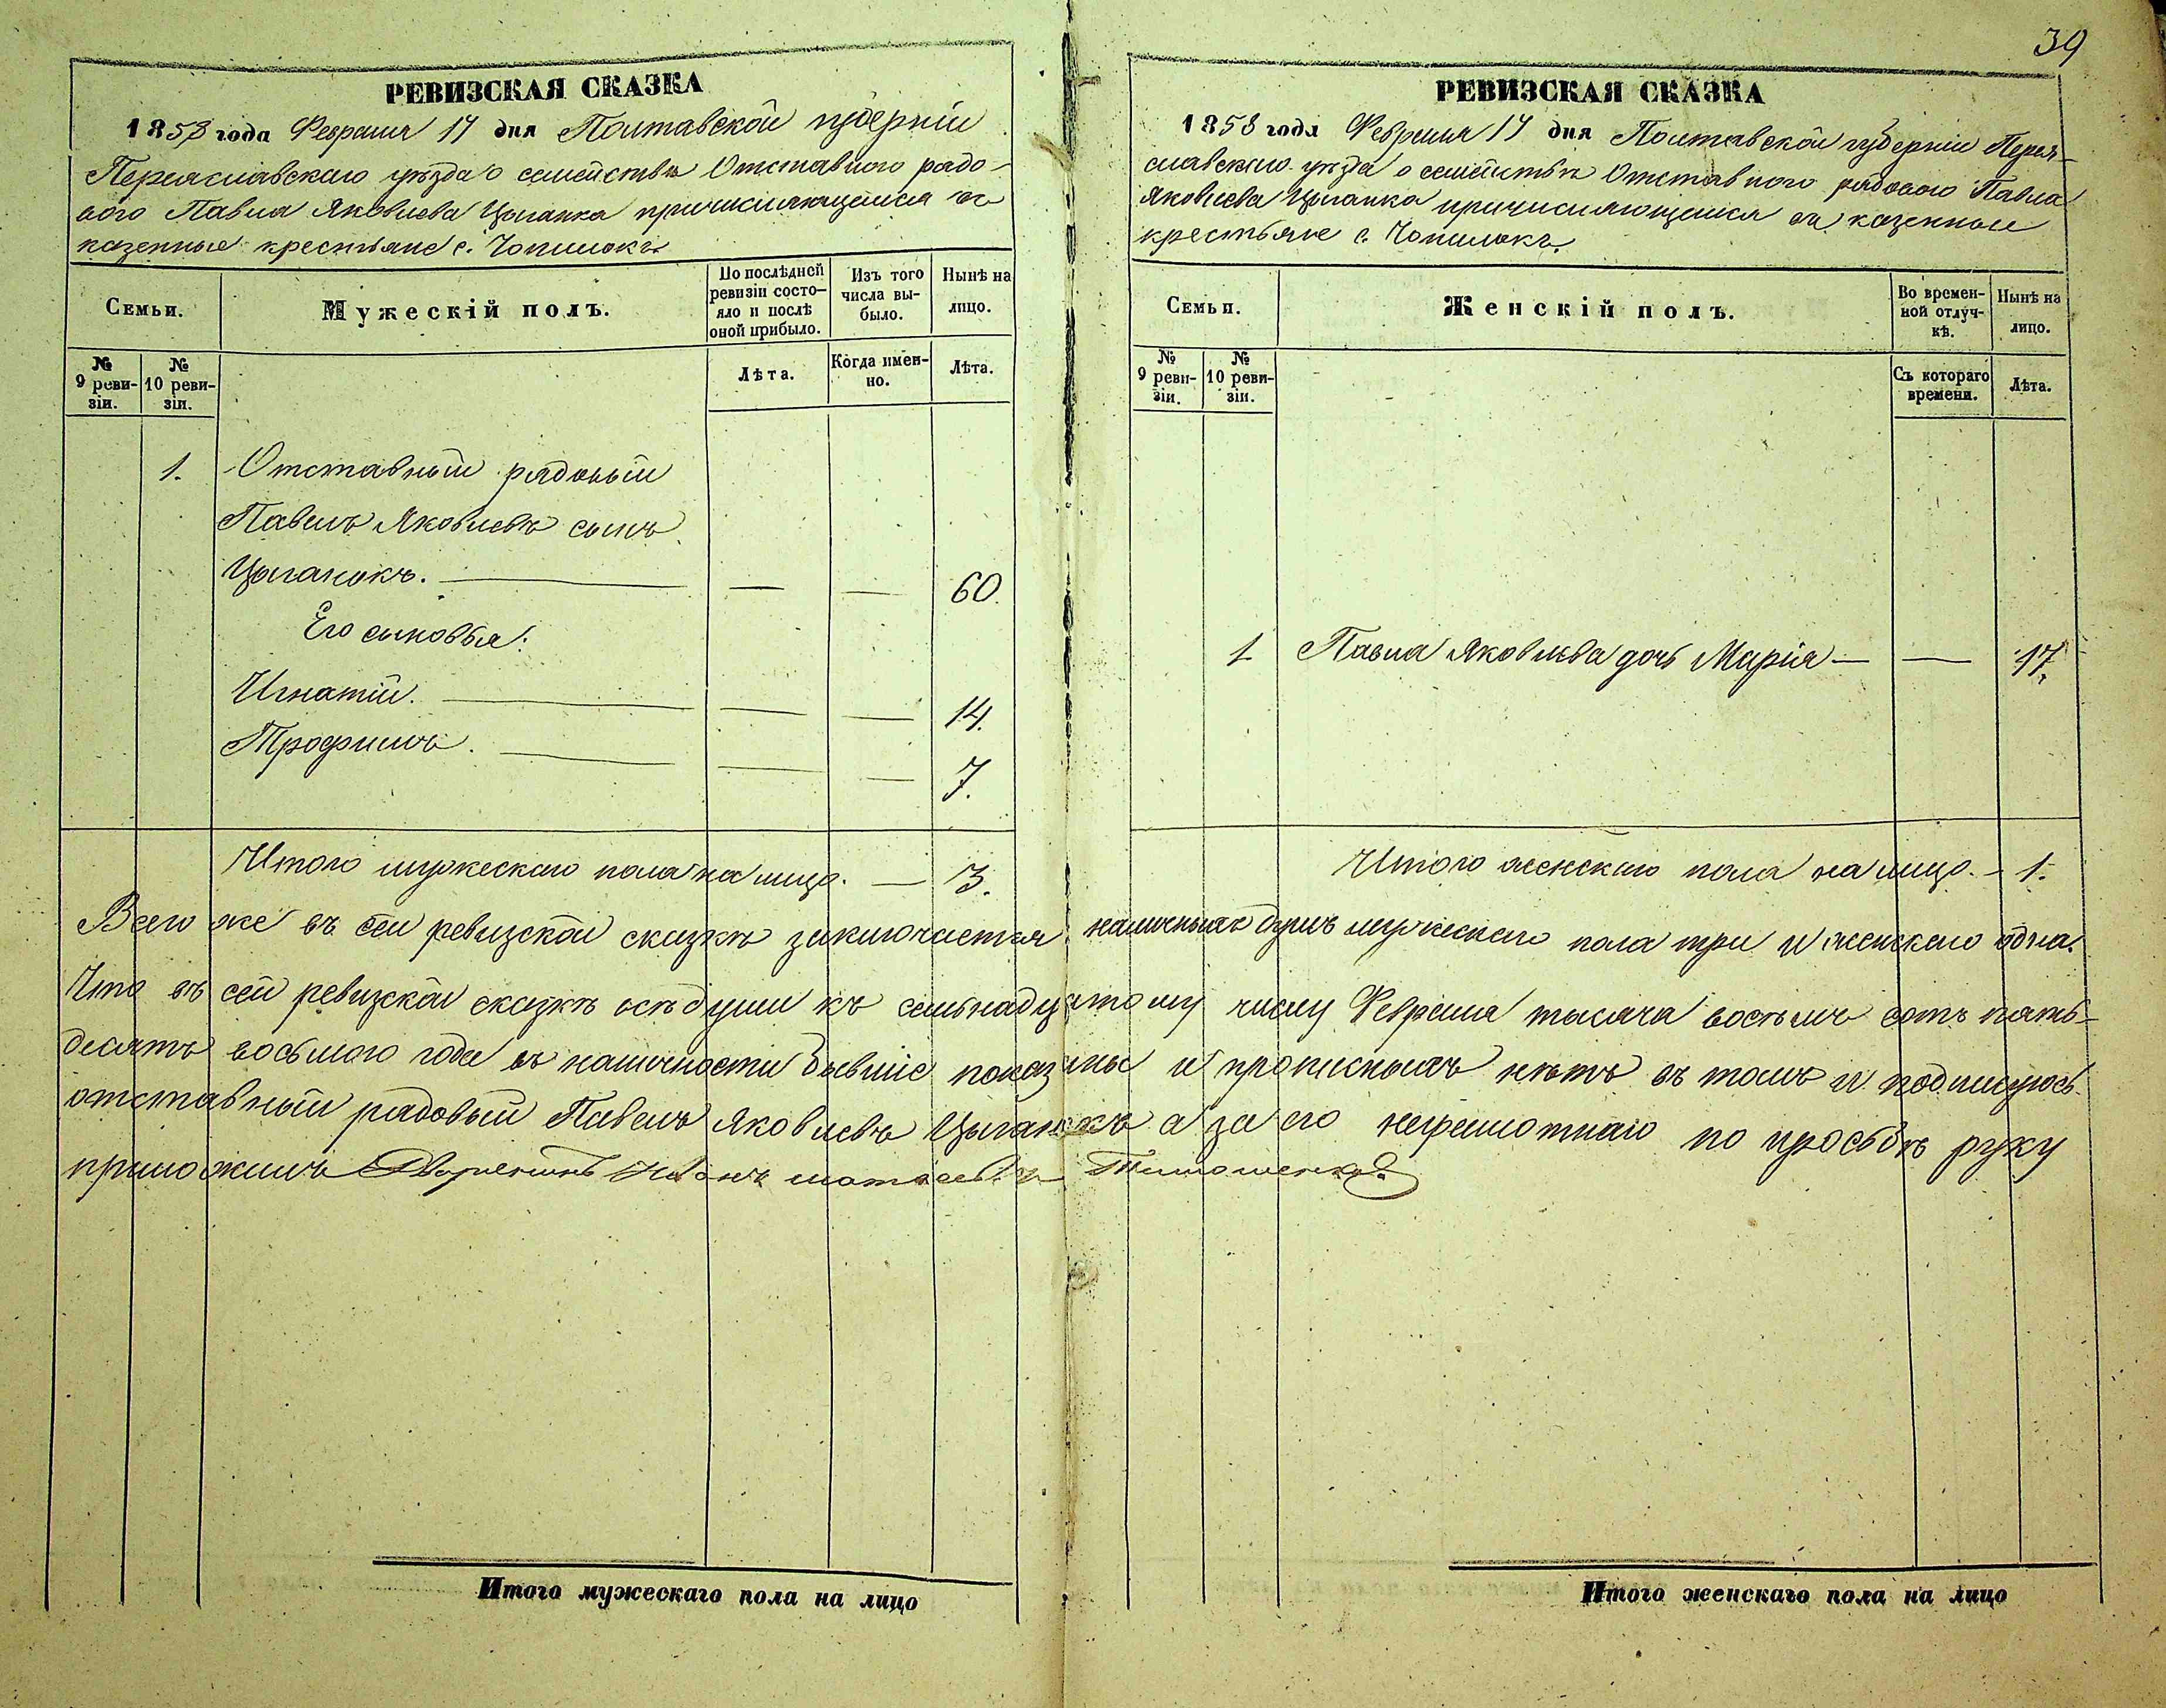 39
РЕВИЗСКАЯ СКАЗКА
1858 года Февраля 17 дня Полтавской губерніи
Переяславскаго уѣзда о семействѣ Отставного рядо-
вого Павла Яковлева Цыганка причисляющемся въ
казенные крестьяне с. Чопилокъ
Семьи.
Мужескій полъ.
По послѣдней ревизіи состо-
яло и послѣ оной прибыло.
Изъ того числа вы-
было.
Нынѣ на лицо.
№ 9 реви-
зіи.
№ 10 реви-
зіи.
Лѣта.
Когда имен-
но.
Лѣта.
1. Отставный рядовый
Павелъ Яковлевъ сынъ
Цыганокъ. — — — 60.
Его сыновья:
Игнатій. — — — 14.
Трофимъ. — — — 7.
Итого мужескаго пола на лицо. — 3.
РЕВИЗСКАЯ СКАЗКА
1858 года Февраля 17 дня Полтавской губерніи Перея-
славскаго уѣзда о семействѣ Отставного рядового Павла
Яковлева Цыганка причисляющемся въ казенные
крестьяне с. Чопилокъ.
Семьи.
Женскій полъ.
Во времен-
ной отлуч-
кѣ.
Нынѣ на лицо.
№ 9 реви-
зіи.
№ 10 реви-
зіи.
Съ котораго времени.
Лѣта.
1 Павла Яковлева дочь Марія — — 17.
Итого женскаго пола на лицо. — 1.
Всего же въ сей ревизской сказкѣ заключается наличныхъ душъ мужескаго пола три и женскаго одна.
Что въ сей ревизской сказкѣ всѣ души къ семьнадцатому числу Февраля тысяча восемь сотъ пять-
десятъ восьмого года въ наличности бывшіе показаны и прописныхъ нѣтъ въ томъ и подпишуюсь
отставный рядовый Павелъ Яковлевъ Цыганокъ а за его неграмотнаго по прозьбѣ руку
приложилъ Дворянинъ Иванъ Тимошенко.
Итого мужескаго пола на лицо
Итого женскаго пола на лицо